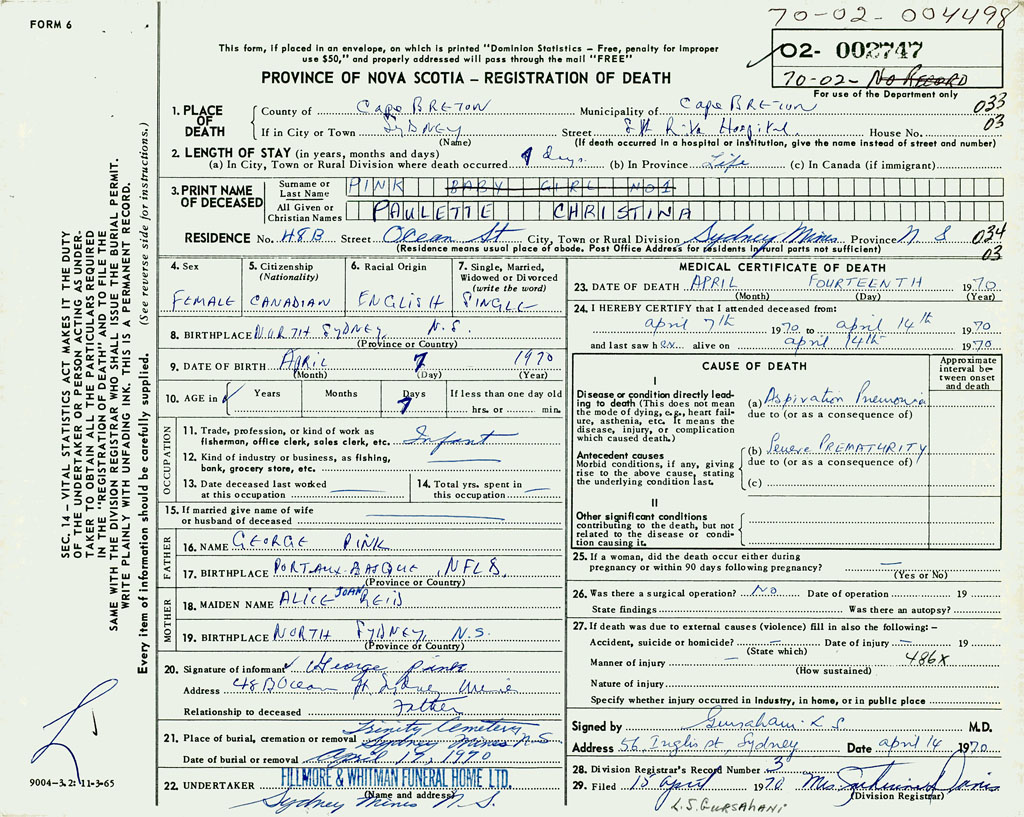 FORM 6
70-02-004498
This form, if placed in an envelope, on which is printed "Dominion Statistics – Free, penalty for improper
use $50," and properly addressed will pass through the mail "FREE"
02- 002747
PROVINCE OF NOVA SCOTIA – REGISTRATION OF DEATH
70-02- No RECORD
For use of the Department only
1. PLACE OF DEATH
County of Cape BRETON Municipality of Cape BRETON 033
If in City or Town SYDNEY Street Hospital House No. 03
(Name) (If death occurred in a hospital or institution, give the name instead of street and number)
2. LENGTH OF STAY (in years, months and days)
(a) In City, Town or Rural Division where death occurred days (b) In Province Life (c) In Canada (if immigrant)
3. PRINT NAME OF DECEASED
Surname or Last Name PINK BABY GIRL NO1
All Given or Christian Names PAULETTE CHRISTINA
RESIDENCE No. 48B Street Ocean St City, Town or Rural Division Sydney Mines Province N S 034
(Residence means usual place of abode. Post Office Address for residents in rural parts not sufficient) 03
4. Sex
FEMALE
5. Citizenship
(Nationality)
CANADIAN
6. Racial Origin
ENGLISH
7. Single, Married,
Widowed or Divorced
(write the word)
SINGLE
8. BIRTHPLACE NORTH SYDNEY, N.S.
(Province or Country)
9. DATE OF BIRTH APRIL 7 1970
(Month) (Day) (Year)
10. AGE in Years Months Days If less than one day old
7 hrs. or min.
OCCUPATION
11. Trade, profession, or kind of work as
fisherman, office clerk, sales clerk, etc. Infant
12. Kind of industry or business, as fishing,
bank, grocery store, etc.
13. Date deceased last worked
at this occupation
14. Total yrs. spent in
this occupation
15. If married give name of wife
or husband of deceased
FATHER
16. NAME GEORGE PINK
17. BIRTHPLACE PORTAUX-BASQUE, NFLS.
(Province or Country)
MOTHER
18. MAIDEN NAME ALICE JOAN REID
19. BIRTHPLACE NORTH SYDNEY, N.S.
(Province or Country)
20. Signature of informant George Pink
Address 48B Ocean St Sidney
Relationship to deceased Father
21. Place of burial, cremation or removal Trinity Cemetery
Sydney Mines N S
Date of burial or removal April 1970
22. UNDERTAKER FILLMORE & WHITMAN FUNERAL HOME LTD.
(Name and address)
Sydney Mines N. S.
MEDICAL CERTIFICATE OF DEATH
23. DATE OF DEATH APRIL FOURTEENTH 1970
(Month) (Day) (Year)
24. I HEREBY CERTIFY that I attended deceased from:
april 7th 1970 to april 14th 1970
and last saw her alive on april 14th 1970
CAUSE OF DEATH
Approximate
interval be-
tween onset
and death
I
Disease or condition directly lead-
ing to death (This does not mean
the mode of dying, e.g., heart fail-
ure, asthenia, etc. It means the
disease, injury, or complication
which caused death.)
(a) Aspiration Pneumonia
due to (or as a consequence of)
Antecedent causes
Morbid conditions, if any, giving
rise to the above cause, stating
the underlying condition last.
(b) Severe PREMATURITY
due to (or as a consequence of)
(c)
II
Other significant conditions
contributing to the death, but not
related to the disease or condi-
tion causing it.
25. If a woman, did the death occur either during
pregnancy or within 90 days following pregnancy?
(Yes or No)
26. Was there a surgical operation? No Date of operation 19
State findings Was there an autopsy?
27. If death was due to external causes (violence) fill in also the following:–
Accident, suicide or homicide? Date of injury 19
(State which)
Manner of injury 486X
(How sustained)
Nature of injury
Specify whether injury occurred in industry, in home, or in public place
Signed by Gursahani L S M.D.
Address 56, Inglis st Sydney Date april 14 1970
28. Division Registrar's Record Number 3
29. Filed 15 april 1970 Mrs.
(Division Registrar)
L.S. GURSAHANI
SEC. 14 – VITAL STATISTICS ACT MAKES IT THE DUTY
OF THE UNDERTAKER OR PERSON ACTING AS UNDER-
TAKER TO OBTAIN ALL THE PARTICULARS REQUIRED
IN THE "REGISTRATION OF DEATH" AND TO FILE THE
SAME WITH THE DIVISION REGISTRAR WHO SHALL ISSUE THE BURIAL PERMIT.
WRITE PLAINLY WITH UNFADING INK. THIS IS A PERMANENT RECORD.
Every item of information should be carefully supplied. (See reverse side for instructions.)
9004-3.2: 11-3-65